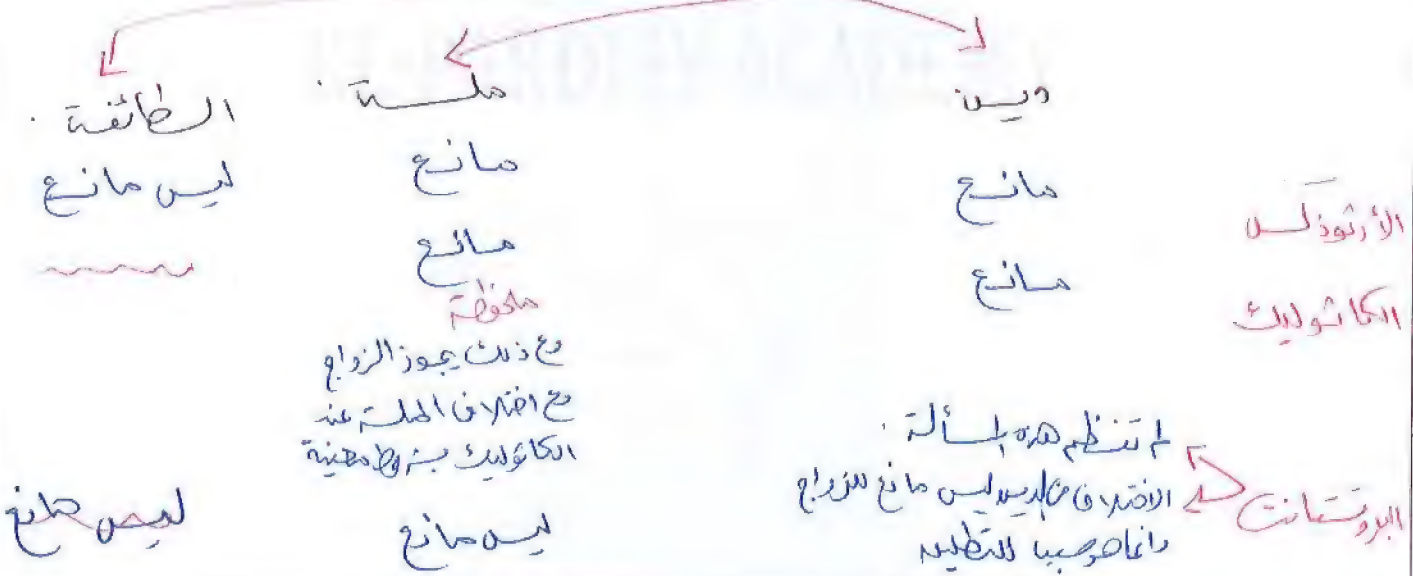 دين ملة الطائفة
الأرثوذكس مانع مانع ليس مانع
الكاثوليك مانع مانع
ملحوظة
مع ذلك يجوز الزواج
مع اختلاف الملة عند
الكاثوليك بشروط معينة
البروتستانت لم تنظم هذه المسألة
الاختلاف في الدين ليس مانع للزواج
وانما هو سببا للتطليق
ليس مانع ليس مانع